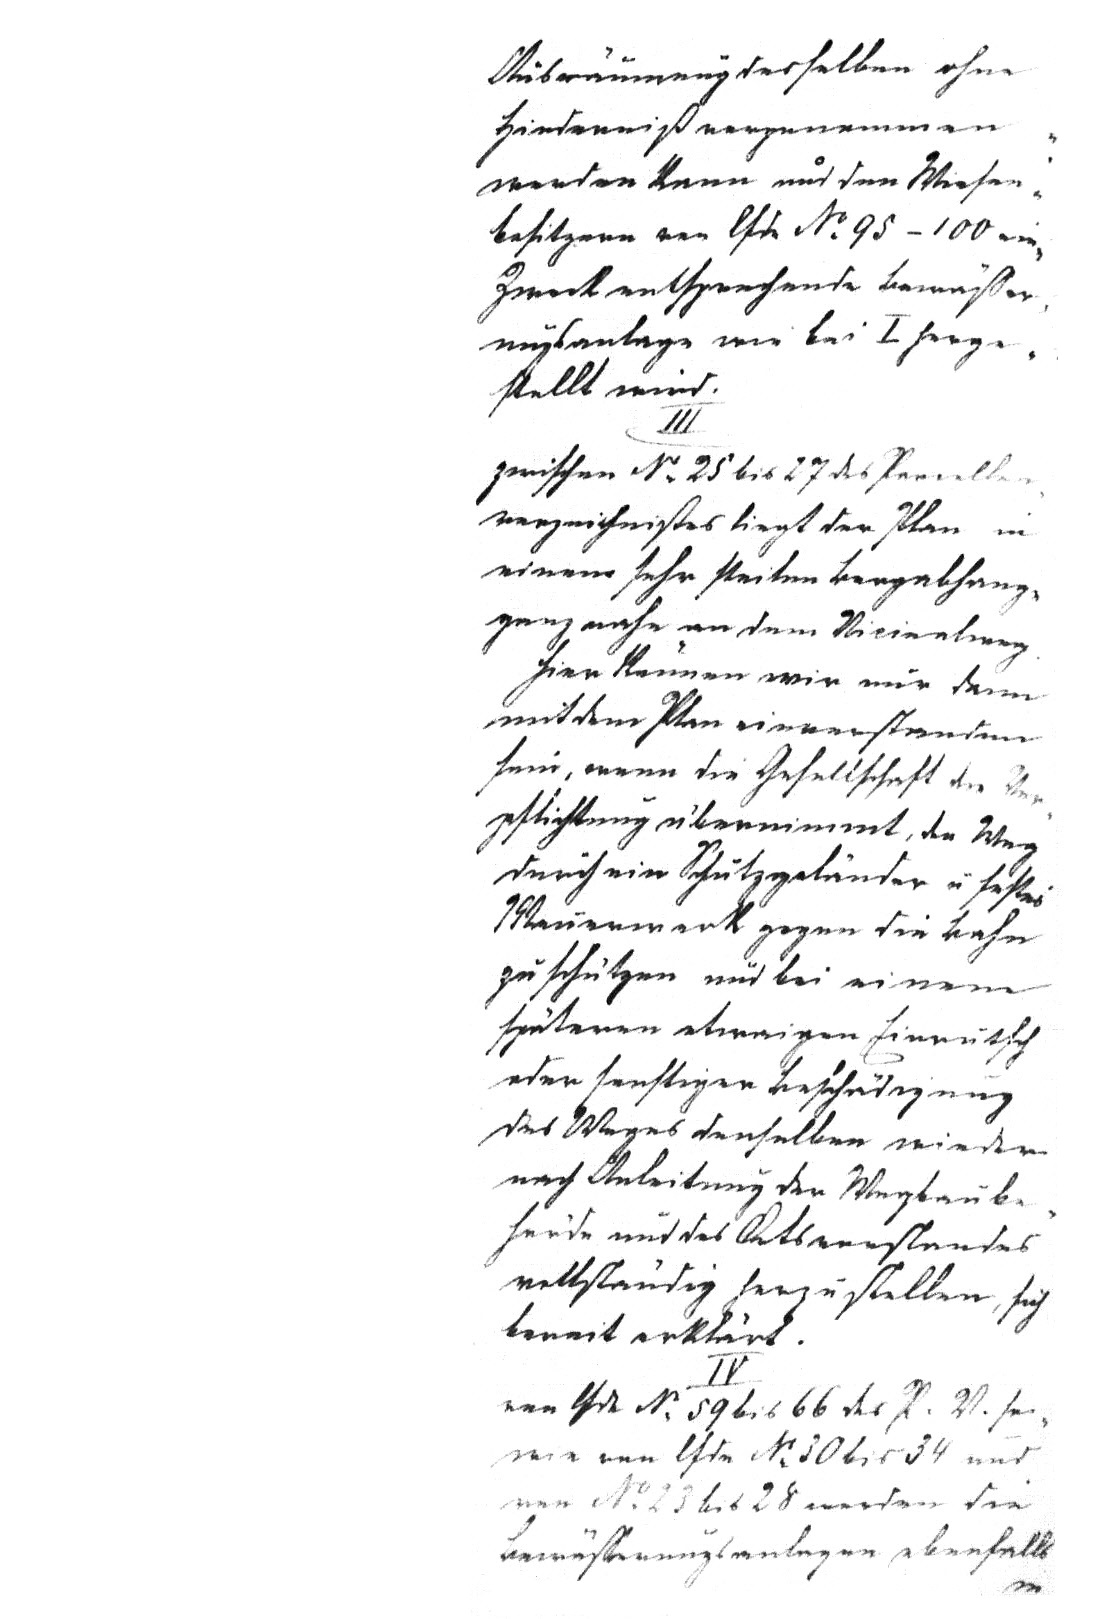 Ausräumung desselben ohne
Hinderniß vorgenommen
werden kann und den Wiesen„
besitzern von lfde No. 95 – 100 ein„
Zweck entsprechende Bewässer„
ungsanlage wie bei I herge„
stellt wird.
III
zwischen No. 25 bis 27 des Parcellen„
verzeichnißes liegt der Plan in
einem sehr steilen Bergabhang„
ganz nahe an dem Vicinalweg.
Hier können wir nur dann
mit dem Plan einverstanden
sein, wenn die Gesellschaft die Ver„
pflichtung übernimmt, den Weg
durch ein Schutzgeländer u festes
Mauerwerk gegen die Bahn
zu schützen und bei einem
späteren etwaigen Einrutsch
oder sonstiger Beschädigung
des Weges denselben wieder
nach Anleitung der Wegbaube„
hörde und des Ortsvorstandes
vollständig herzustellen, sich
bereit erklärt.
IV
von lfde No. 59 bis 66 des P. V. so„
wie von lfde No. 30 bis 34 und
von No. 23 bis 28 werden die
Bewässerungsanlagen ebenfalls